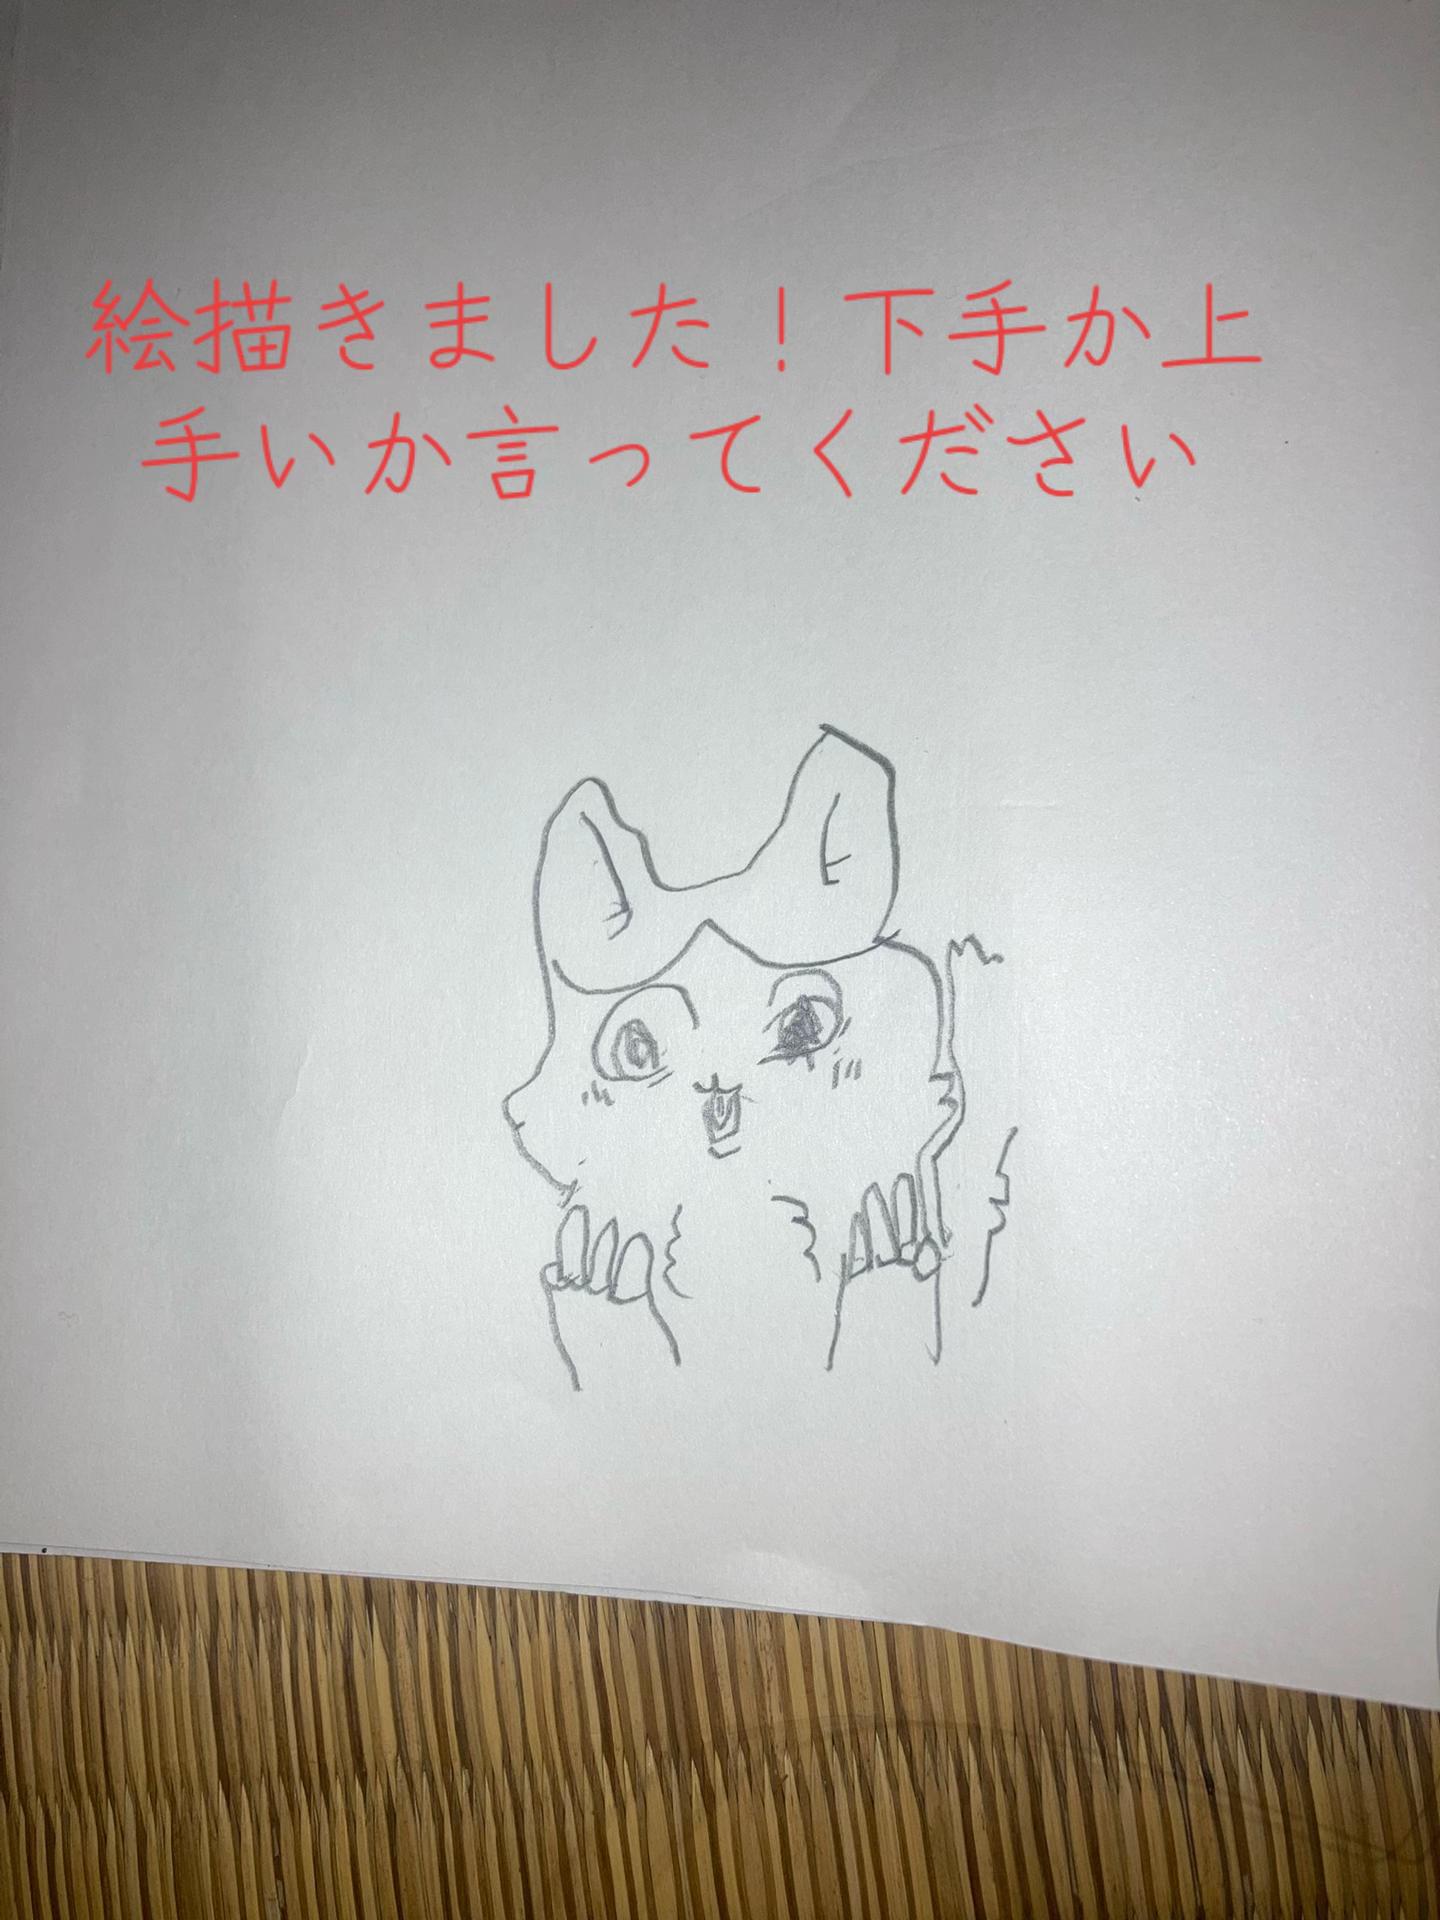 絵描きました！下手か上
手いか言ってください